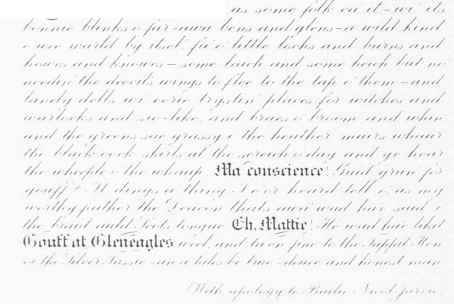 as some folk ca' it – wi' its
bonnie blinks o' far-awa bens and glens – a wild kind
o' wee warld by itsel', fu' o' little lochs and burns and
howes and knowes – some laich and some heich but no
needin' the deevil's wings to flee to the tap o' them – and
dells, wi' eerie trystin' places for witches and
warlocks and sic-like, and braes o' broom and whin
and the greens sae grassy i' the heather muirs whaur
the black cock skirls at the scraich o' day and ye hear
the wheeple o' the whaup. Ma conscience! Guid grun for
gowff! It dings a' thing I ever heard tell o', as my
worthy father the Deacon that's awa' wad hae said i'
the braid auld Scots tongue. Eh, Mattie! He wad hae liked
Gouff at Gleneagles weel, and
o' the Silver and honest man
With apology to